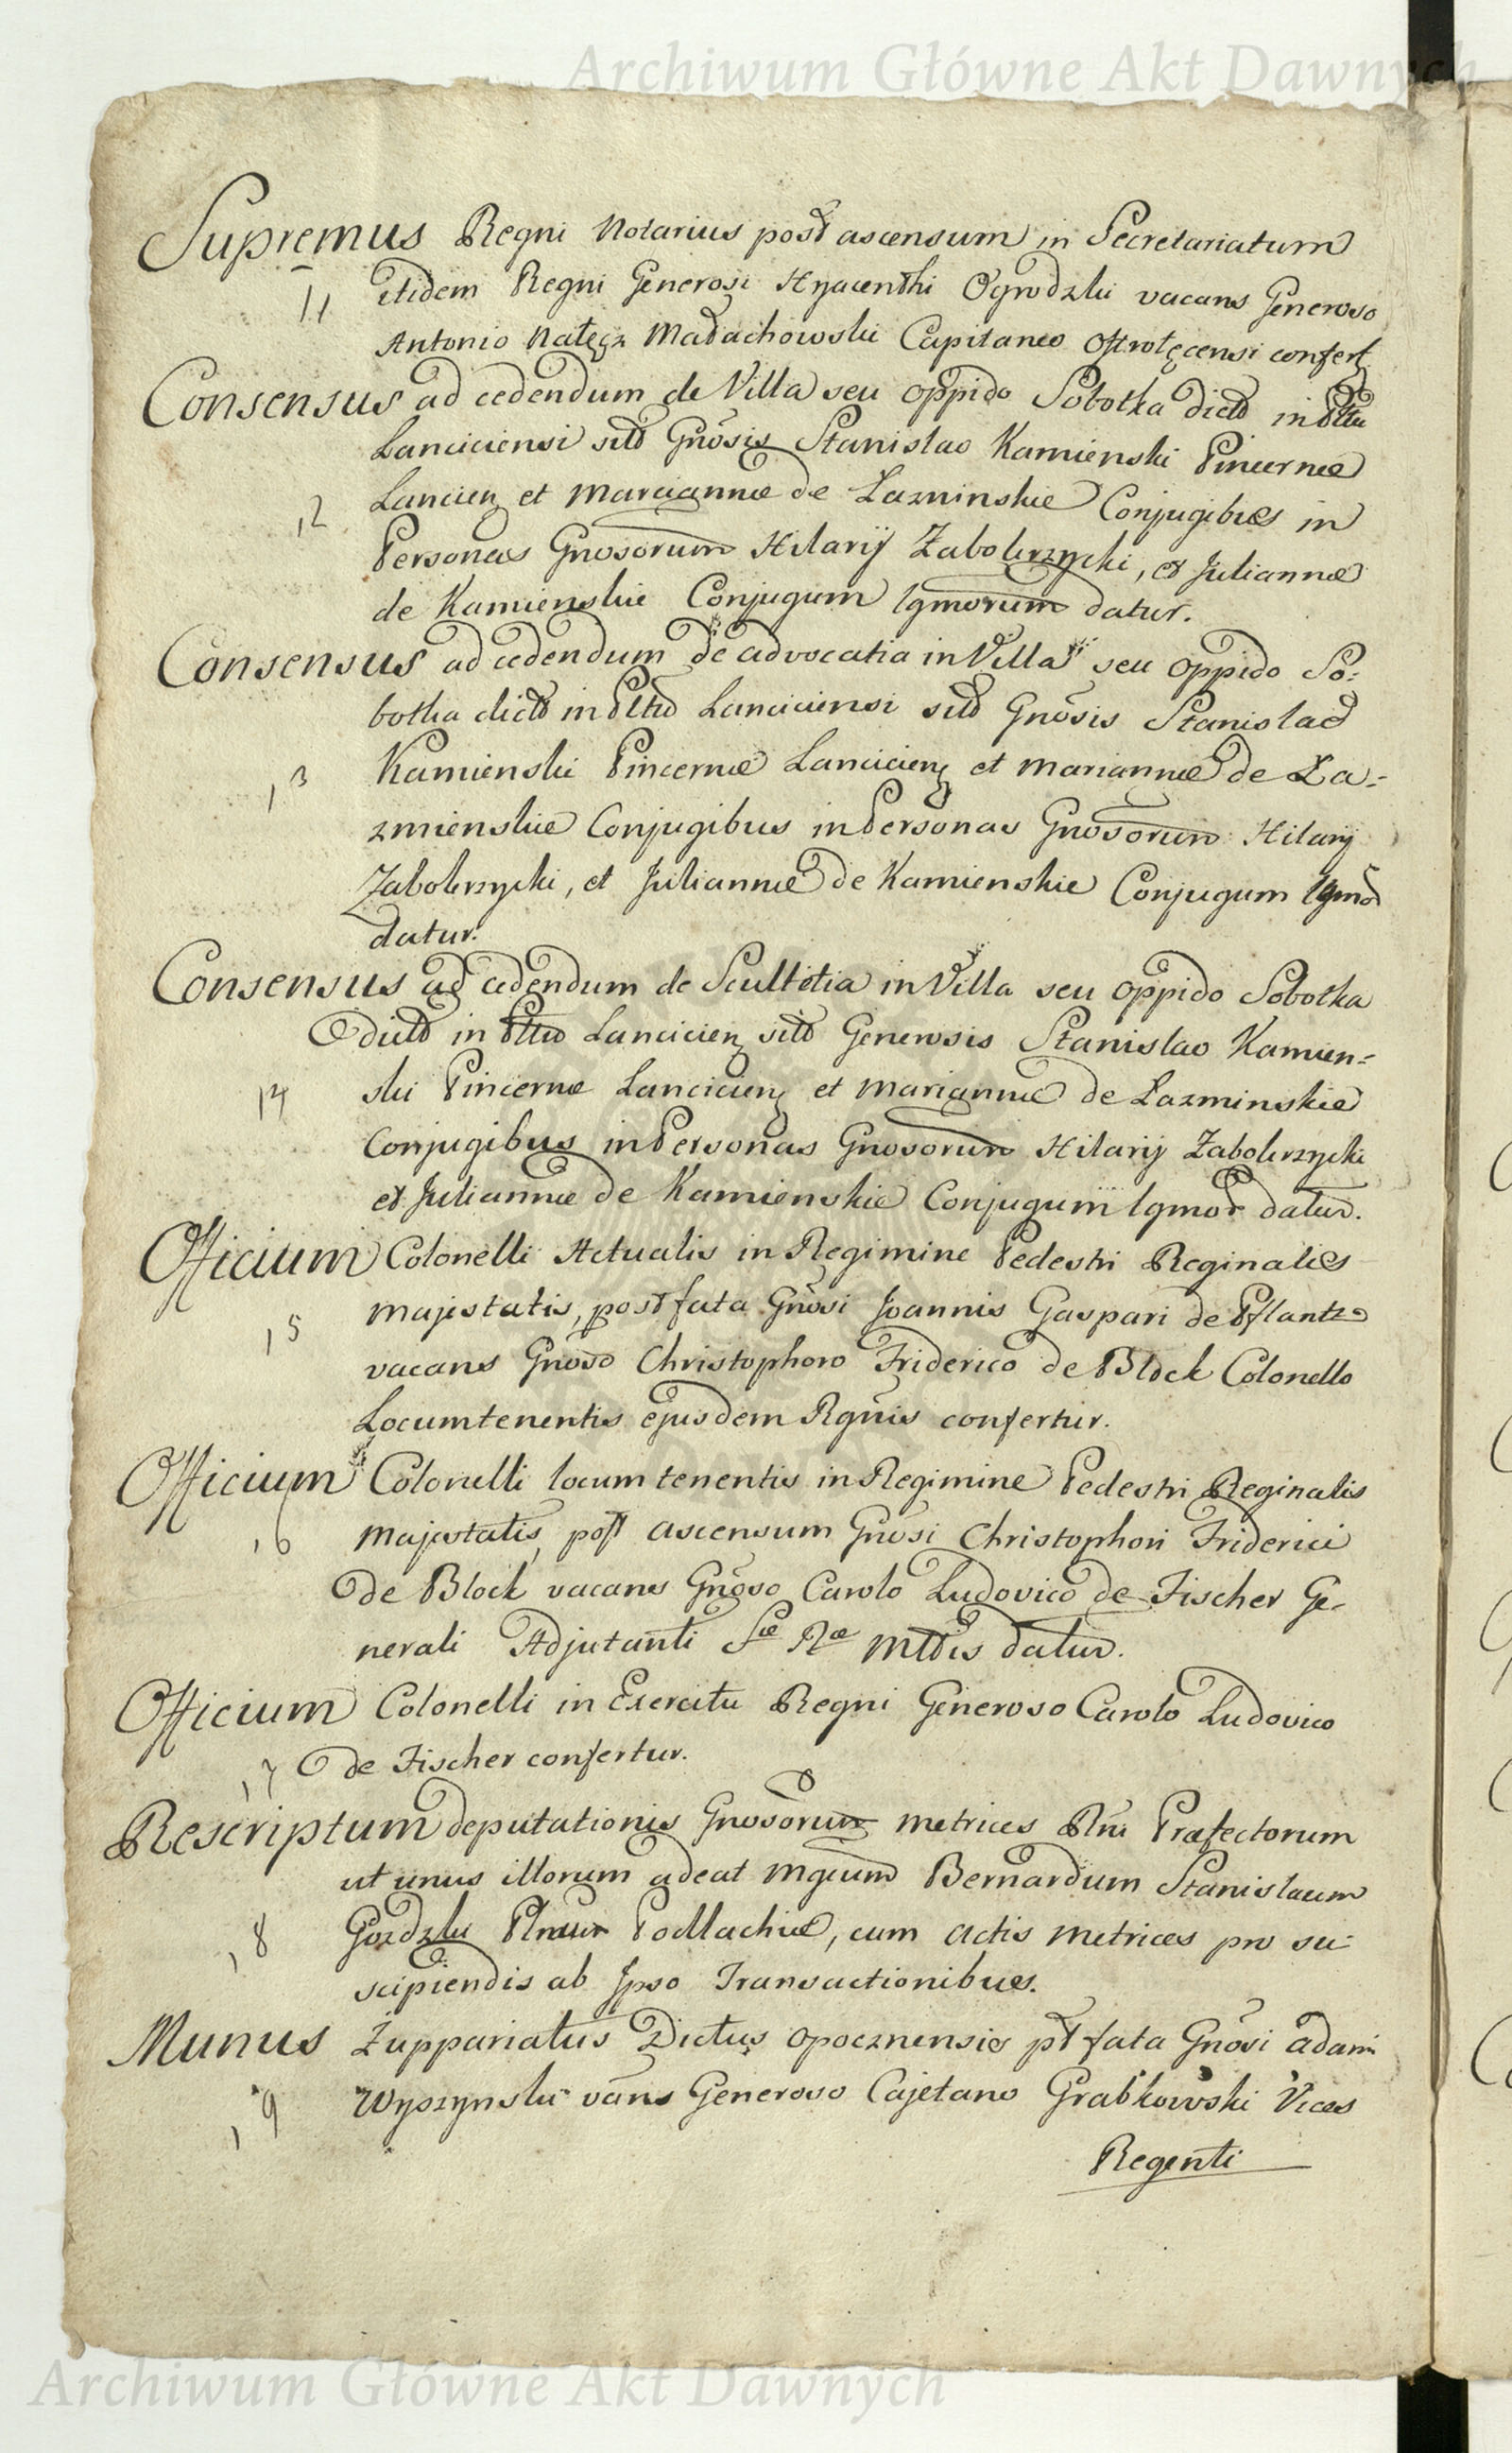 Archiwum Główne Akt Dawnych
Supremus Regni Notarius post ascensum in Secretariatum
11 itidem Regni Generosi Hyacenthi Ogrodzki vacans Generoso
Antonio Nałęcz Małachowski Capitaneo Ostrołęcensi confert
Consensus ad cedendum de Villa seu oppido Sobotka dicto in Pttu
Lanciciensi sito Gnōsis Stanislao Kamienski Pincernæ
12 Lancicien et Marciannæ de Lazminskie Conjugibus in
Personas Gnosorum Hilarij Zabokrzycki, et Juliannæ
de Kamienskie Conjugum lgmorum datur.
Consensus ad cedendum de advocatia in Villa seu oppido So:
botka dicto in Pttu Lanciciensi sito Gnōsis Stanislao
13 Kamienski Pincernæ Lancicien et Mariannæ de La:
zmienskie Conjugibus in Personas Gnosorum Hilarij
Zabokrzycki, et Juliannæ de Kamienskie Conjugum lgmor
datur.
Consensus ad cedendum de Scultetia in Villa seu oppido Sobotka
dicto in Pttu Lancicien sito Generosis Stanislao Kamien:
14 ski Pincernæ Lancicien et Mariannæ de Lazminskie
Conjugibus in Personas Gnosorum Hilarij Zabokrzycki
et Juliannæ de Kamienskie Conjugum lgmor datur.
Officium Colonelli Actualis in Regimine Pedestri Reginalis
15 Majestatis, post fata Gnōsi Joannis Gaspari de Pflantz
vacans Gnōso Christophoro Friderico de Block Colonello
Locumtenentis ejusdem Rgnis confertur.
Officium Colonelli locum tenentis in Regimine Pedestri Reginalis
16 Majestatis, post ascensum Gnōsi Christophori Friderici
de Block vacans Gnōso Carolo Ludovico de Fischer Ge-
nerali Adjutanti Sæ Ræ Mttis datur.
Officium Colonelli in Exercitu Regni Generoso Carolo Ludovico
17 de Fischer confertur.
Rescriptum deputationis Gnosorum Metrices Rni Præfectorum
ut unus illorum adeat Mgcum Bernardum Stanislaum
18 Gozdzki Podlachiæ, cum Actis Metrices pro su-
scipiendis ab Ipso Transactionibus.
Munus Zuppariatus Dictus Opocznensis pt fata Gnōsi Adami
19 Wyszynski vans Generoso Cajetano Grabkowski Vices
Regenti
Archiwum Główne Akt Dawnych